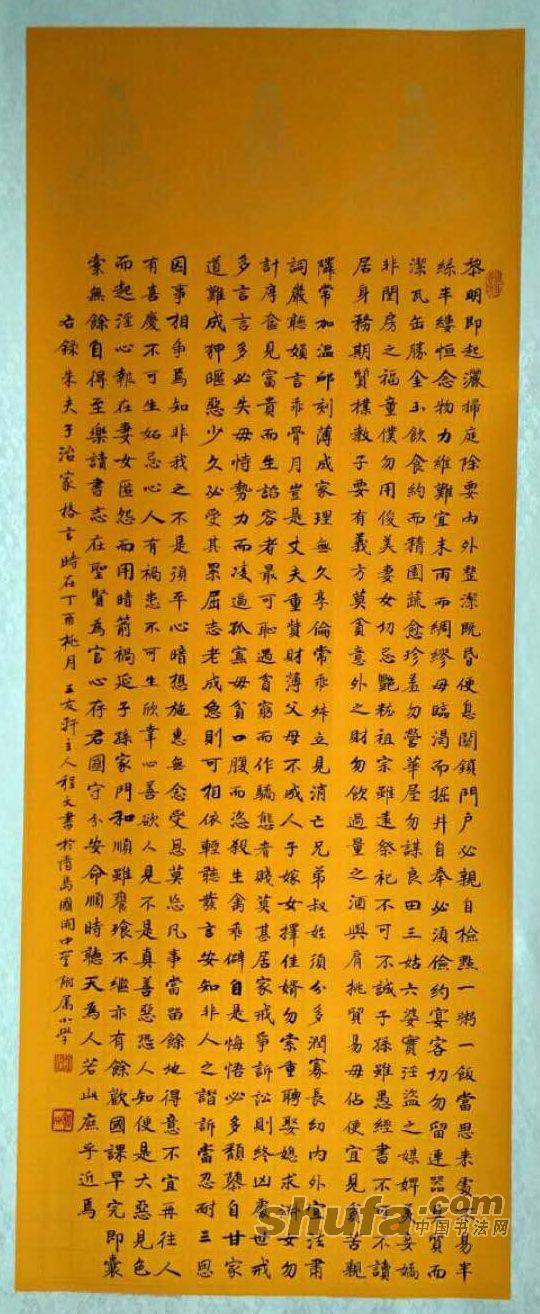 黎明即起灑掃庭除要內外整潔既昏便息關鎖門戶必親自檢點一粥一飯當思來處不易半
絲半縷恒念物力維難宜未雨而綢繆毋臨渴而掘井自奉必須儉約宴客切勿留連器具質而
潔瓦缶勝金玉飲食約而精園蔬愈珍羞勿營華屋勿謀良田三姑六婆實淫盜之媒婢美妾嬌
非閨房之福童僕勿用俊美妻女切忌艷粧祖宗雖遠祭祀不可不誠子孫雖愚經書不可不讀
居身務期質樸教子要有義方莫貪意外之財勿飲過量之酒與肩挑貿易毋佔便宜見窮苦親
隣常加溫卹刻薄成家理無久享倫常乖舛立見消亡兄弟叔姪須分多潤寡長幼內外宜法肅
詞嚴聽婦言乖骨肉豈是丈夫重貲財薄父母不成人子嫁女擇佳婿勿索重聘娶媳求淑女勿
計厚奩見富貴而生諂容者最可恥遇貧窮而作驕態者賤莫甚居家戒爭訴訟則終凶處世戒
多言言多必失毋恃勢力而凌逼孤寡毋貪口腹而恣殺生禽乖僻自是悔悟必多頹隳自甘家
道難成狎暱惡少久必受其累屈志老成急則可相依輕聽發言安知非人之譖訴當忍耐三思
因事相爭焉知非我之不是須平心暗想施惠無念受恩莫忘凡事當留餘地得意不宜再往人
有喜慶不可生妬忌心人有禍患不可生欣幸心善欲人見不是真善惡恐人知便是大惡見色
而起淫心報在妻女匿怨而用暗箭禍延子孫家門和順雖饔飧不繼亦有餘歡國課早完即囊
橐無餘自得至樂讀書志在聖賢為官心存君國守分安命順時聽天為人若此庶乎近焉
右錄朱夫子治家格言時在丁酉桃月三友軒主人程文書於青島國開中學附属小學
shufa.com
中国书法网